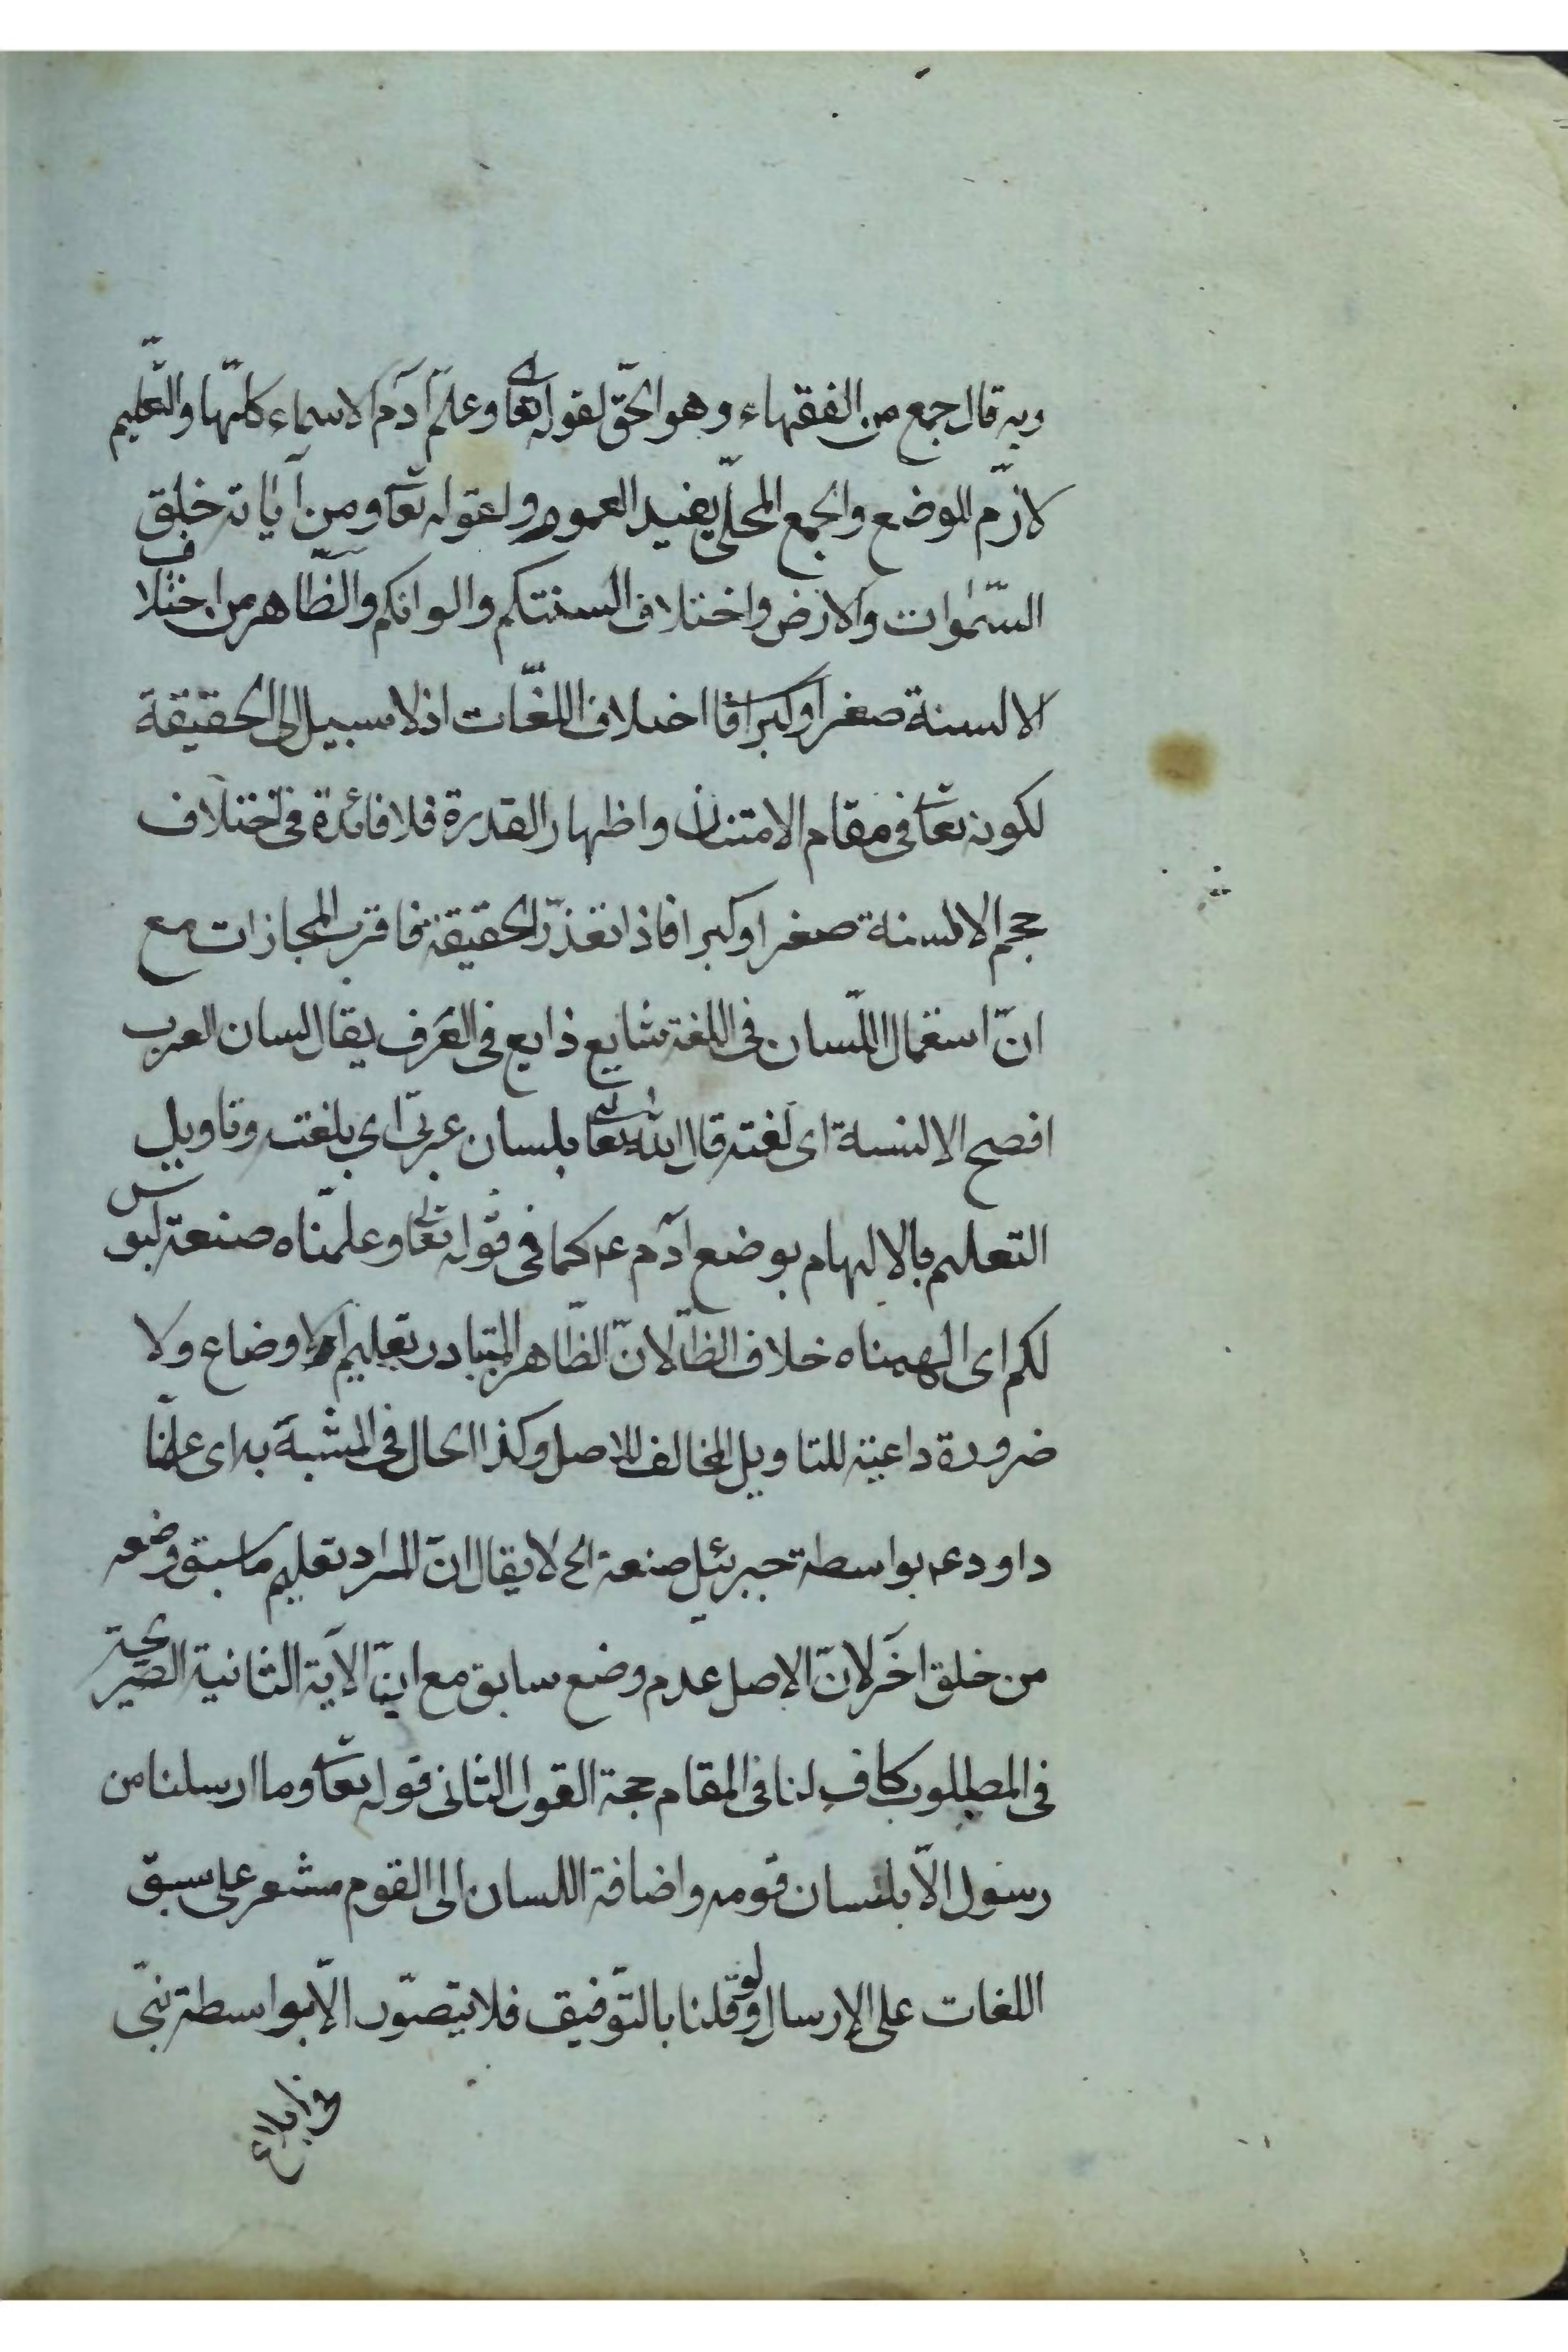 وبه قال جمع من الفقهاء وهو الحقّ لقوله تعالى وعلّم آدم الاسماء كلّها والتّعليم
لازم الموضع والجمع المحلّى يفيد العموم ولقوله تعالى ومن آياته خلق
السّمٰوات والارض واختلاف السنتكم والوانكم والظّاهر من اختلاف
الالسنة صغرا وكبرا اختلاف اللّغات اذ لا سبيل الى الحقيقة
لكونه تعالى فى مقام الامتنان واظهار القدرة فلا فائدة فى اختلاف
حجم الالسنة صغرا وكبرا فاذا تعذّر الحقيقة فاقرب المجازات مع
انّ استعمال اللّسان فى اللغة شايع ذايع فى العرف يقال لسان العرب
افصح الالنسة اى لغته قال الله تعالى بلسان عربىّ اى بلغت وتاويل
التعليم بالالهام بوضع آدم عم كما فى قوله تعالى وعلّمناه صنعة لبوس
لكم اى الهمناه خلاف الظّ لانّ الظّاهر المتبادر تعليم الاوضاع ولا
ضرورة داعية للتاويل المخالف للاصل وكذا الحال فى المشبة به اى علّمنا
داود عم بواسطة جبرئيل صنعة الخ لا يقال انّ المراد تعليم ما سبق وضعه
من خلق اخر لانّ الاصل عدم وضع سابق مع انّ الآية الثانية الصّريحة
فى المطلوب كافٍ لنا فى المقام حجة القول الثانى قوله تعالى وما ارسلنا من
رسول الّا بلسان قومه واضافة اللسان الى القوم مشعر على سبق
اللغات على الإرسال ولو قلنا بالتّوفيق فلا يتصوّر الّا بواسطة نبىّ